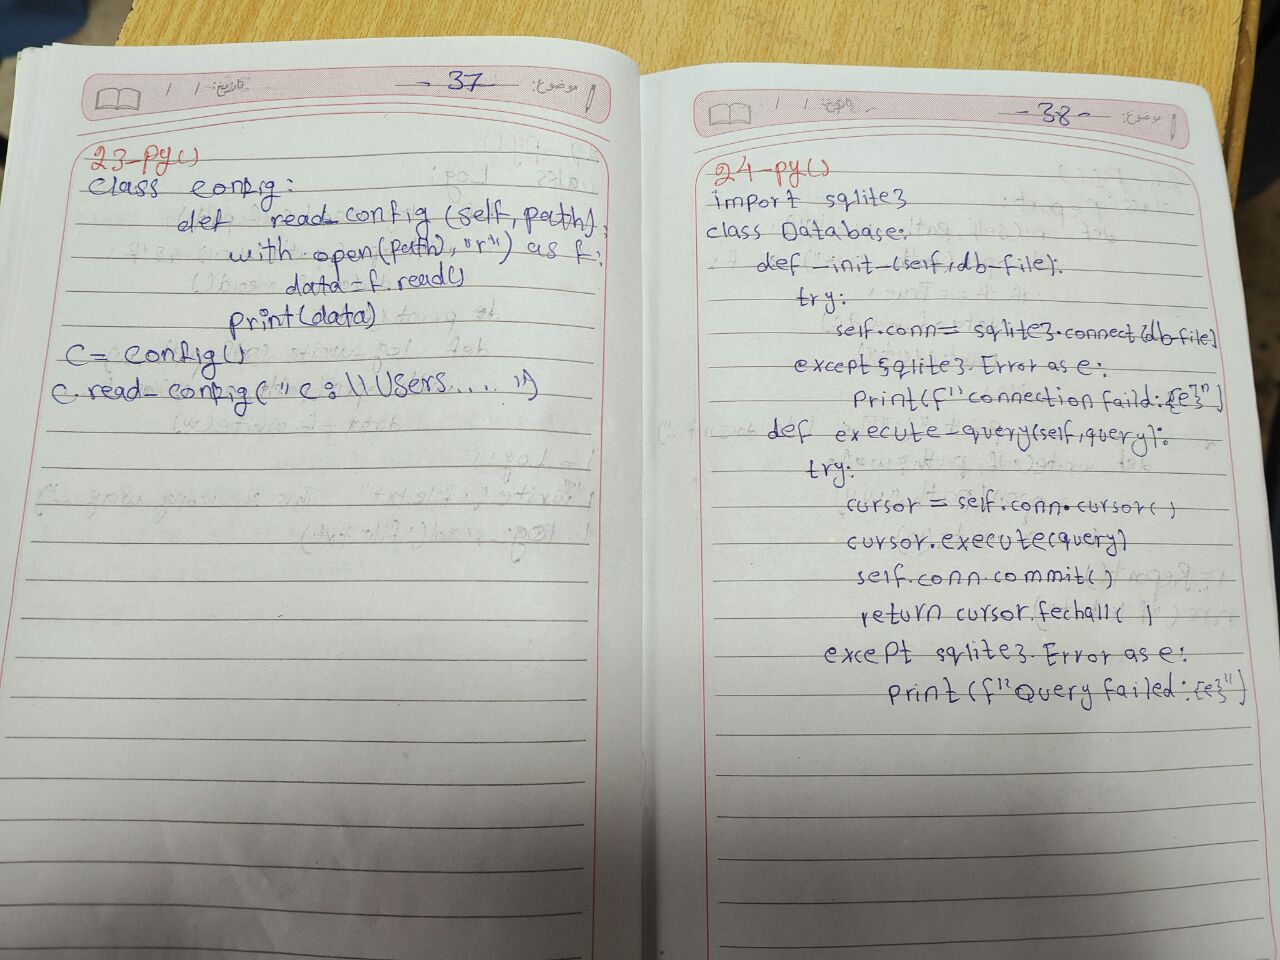 موضوع: - 37 - تاريخ: / /
23-py()
class config:
def read_config (self, path):
with open(path), "r") as f:
data = f.read()
print(data)
C = config()
C.read_config("c:\\Users.... ")
موضوع: - 38 - تاريخ: / /
24-py()
import sqlite3
class Database:
def _init_(self, db-file):
try:
self.conn = sqlite3.connect(db-file)
except sqlite3.Error as e:
print(f"connection faild: {e}")
def execute_query(self, query):
try:
cursor = self.conn.cursor()
cursor.execute(query)
self.conn.commit()
return cursor.fechall( )
except sqlite3.Error as e:
print(f"Query failed: {e}")